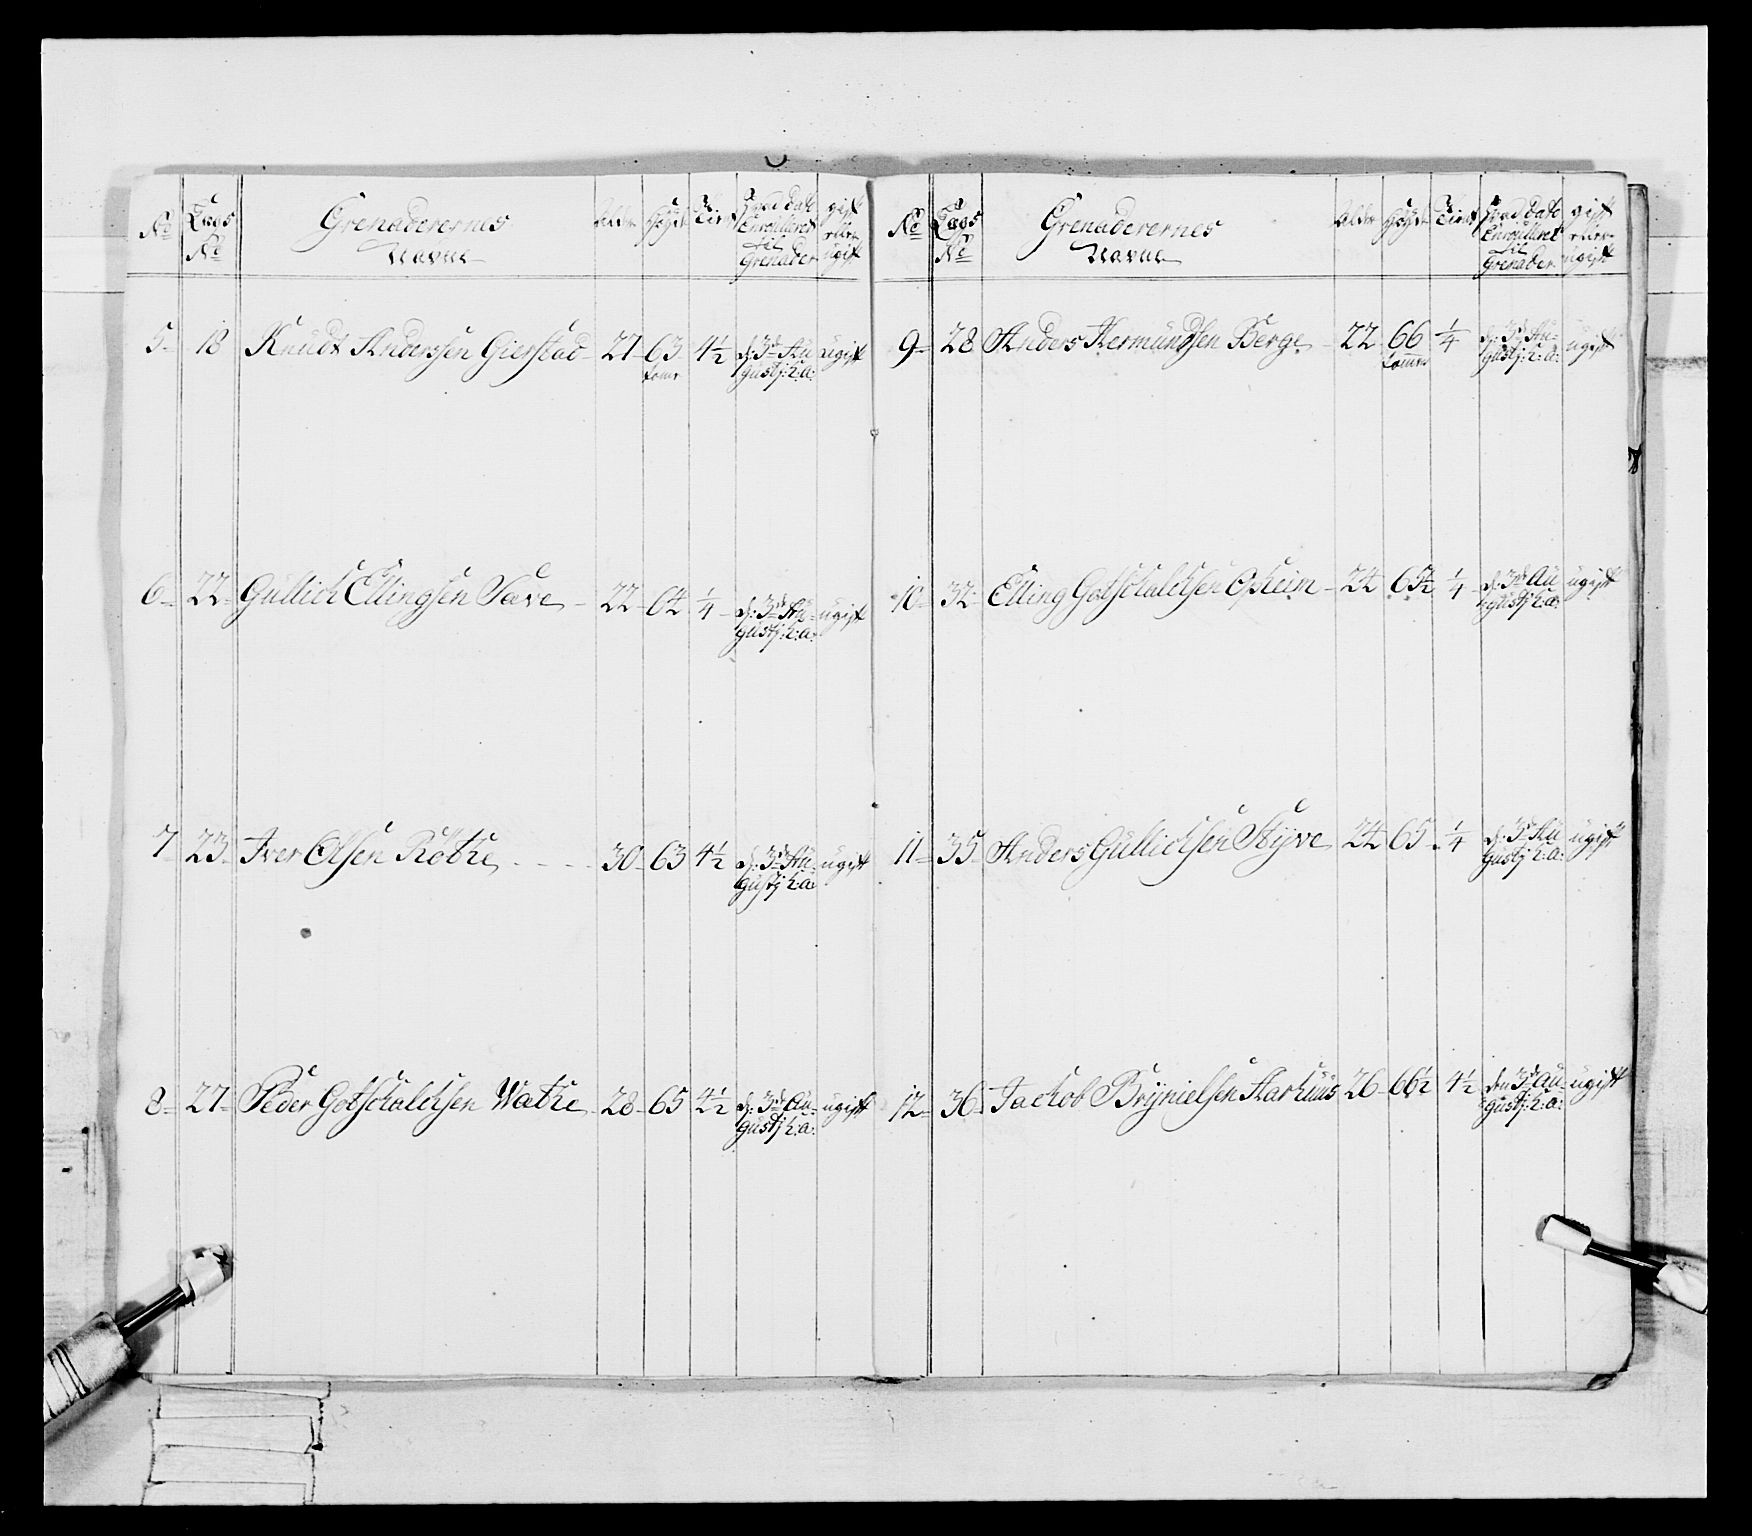 No Lægs No Grenaderernes Navne Alder Høyde Tient Hvad dato Enroulleret til Grenader gift eller ugift
5 18 Knudt Andersen Gierstad 27 63 tomr 4½ d: 3de Au gustj: h: a: ugift
6 22 Gullich Ellingsen Save 22 64 ¼ d: 3de Au gustj: h: a: ugift
7 23 Iver Olsen Röthe 30 63 4½ d: 3de Au gustj h: a: ugift
8 27 Peder Gotschalchsen Wathe 28 65 4½ d: 3de Au gustj h: a: ugift
No Lægs No Grenaderernes Navne Alder Høyde Tient Hvad dato Enroulleret til Grenader gift eller ugift
9 28 Anders Hermundsen Berge 22 66 tommer ¼ d: 3de Au gustj: h: a: ugift
10 32 Elling Gotschalchsen Opheim 24 65½ ¼ d: 3de Au gustj h: a: ugift
11 35 Anders Gullichsen Styve 24 65 ¼ d: 3de Au gustj h: a: ugift
12 36 Jachob Brynielsen Aarhuus 26 66½ 4½ den 3de Au gustj: h: a: ugift